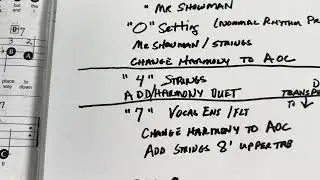 MR SHOWMAN
"0" SETTING (NORMAL RHYTHM PR
MR SHOWMAN / STRINGS
CHANGE HARMONY TO AOC
"4" STRINGS
ADD/HARMONY DUET
D
TRANSPO
"7" VOCAL ENS / FLT
CHANGE HARMONY TO AOC
ADD STRINGS 8' UPPER TAB
7
3 2
place to
way down